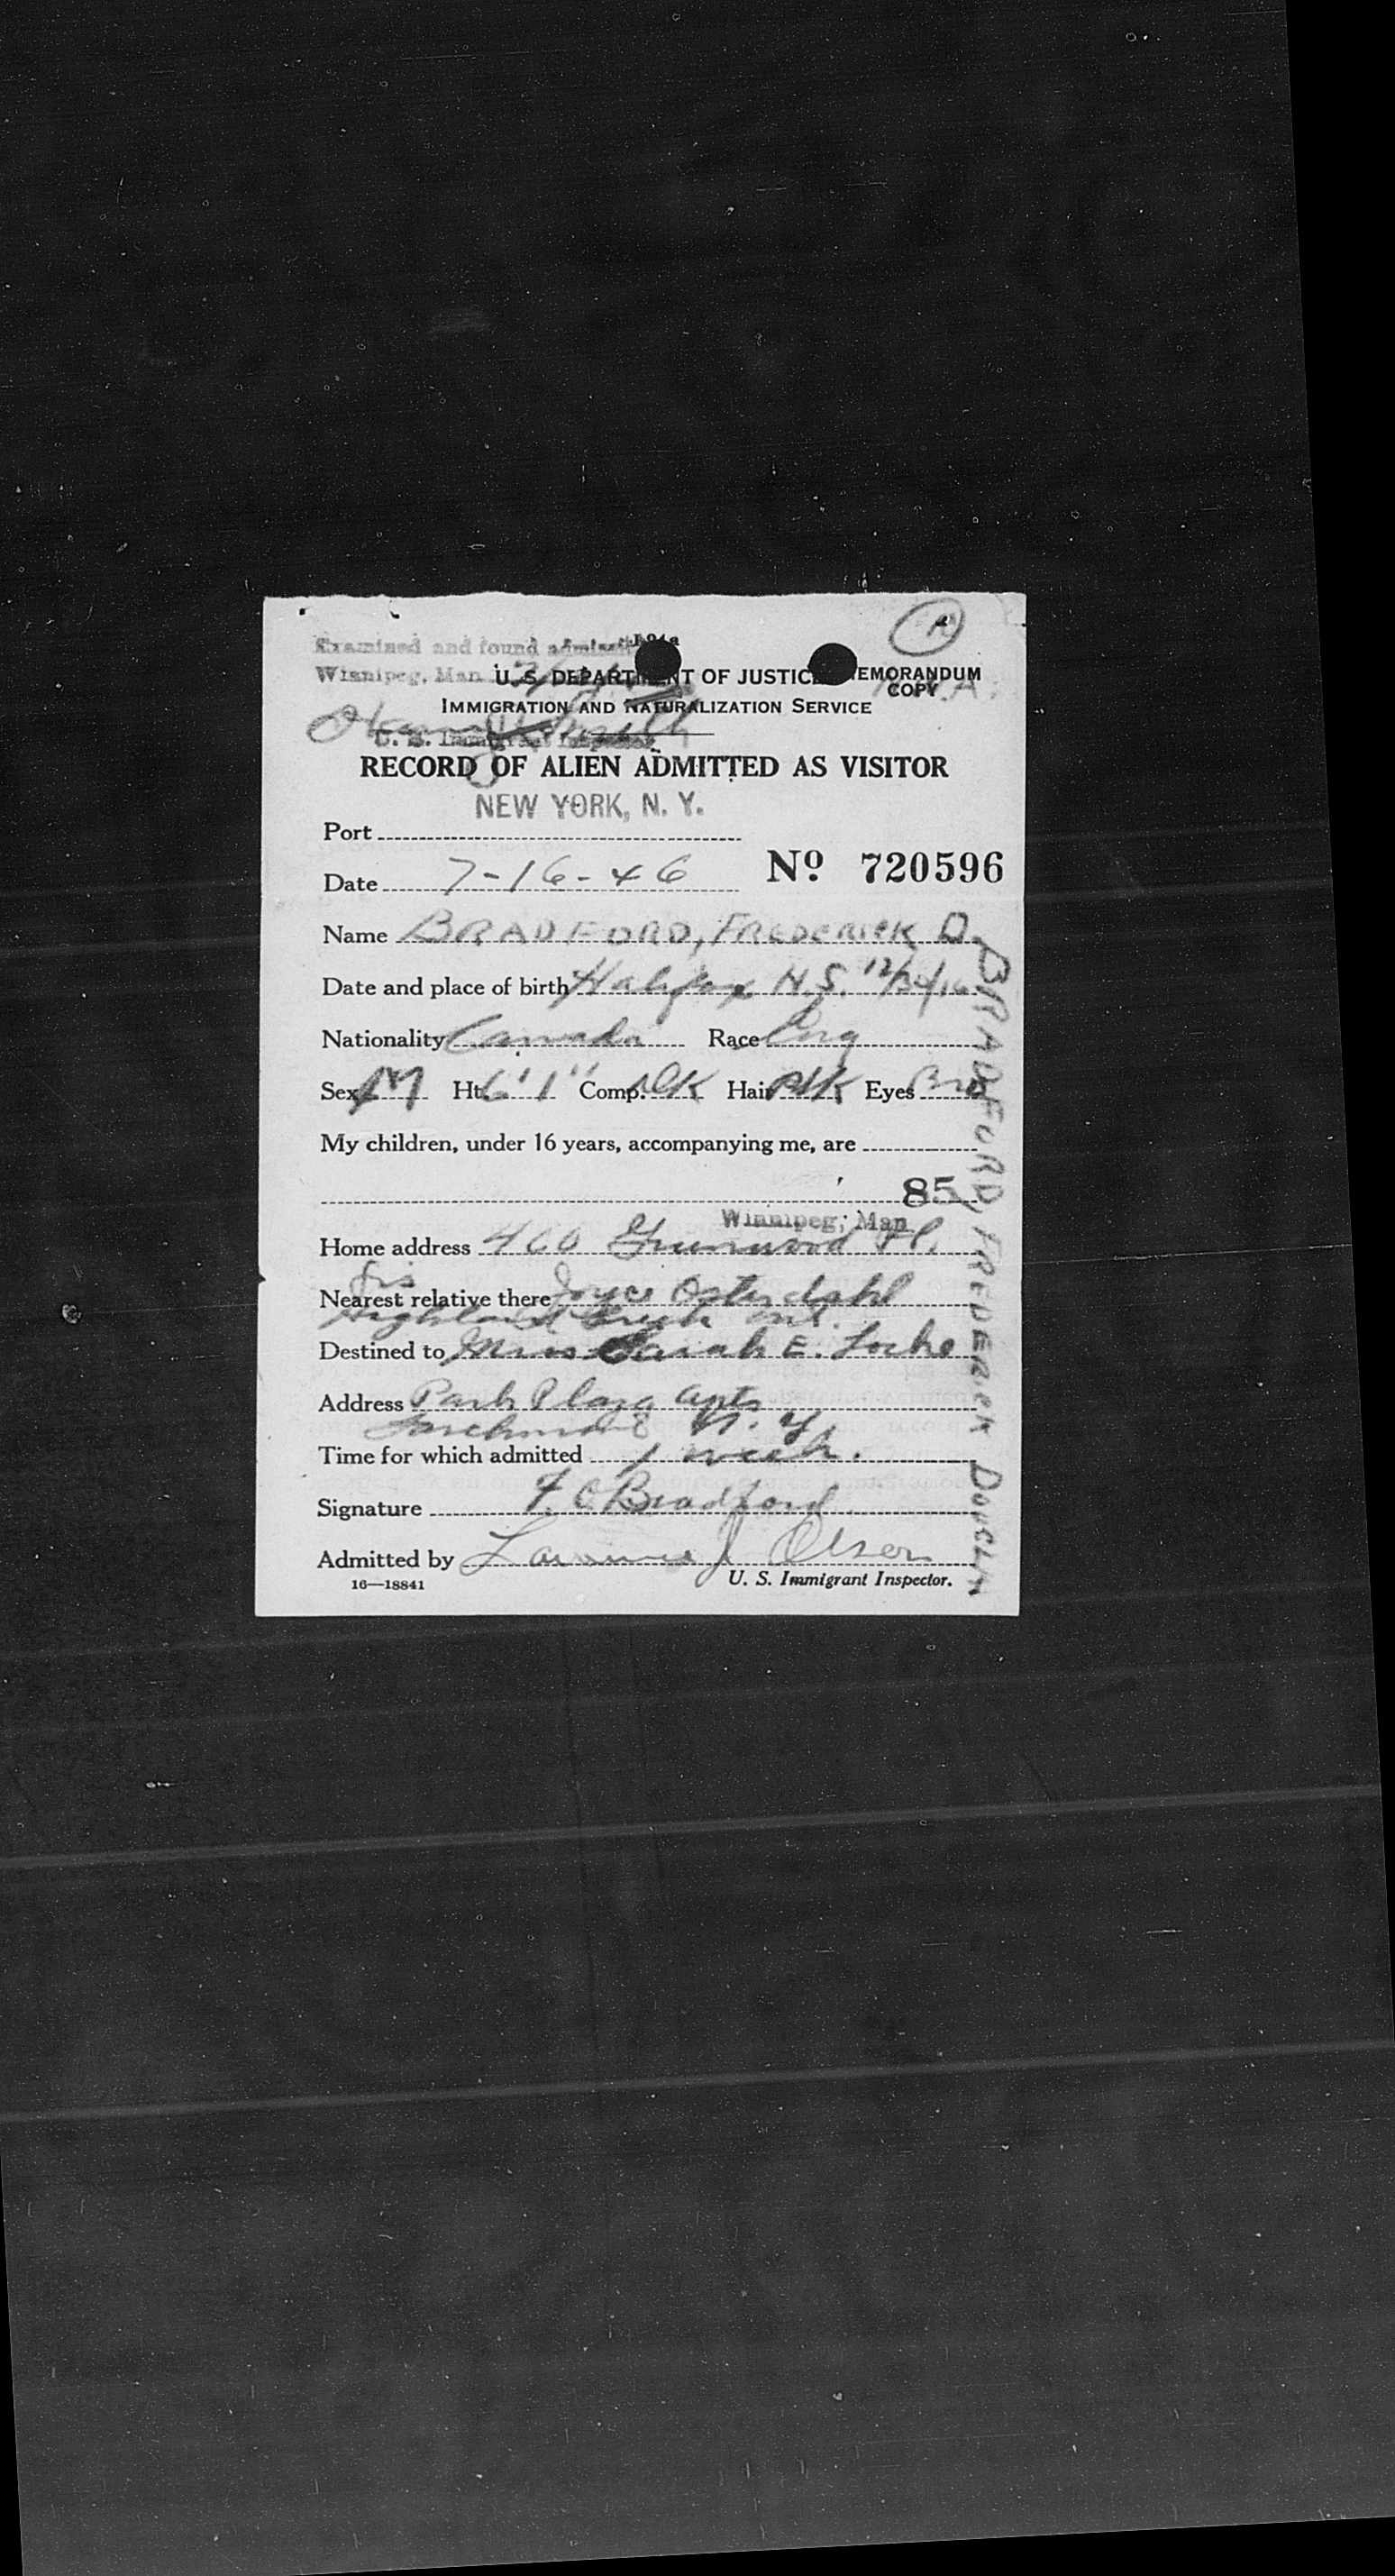 Examined and found
Winnipeg, Man.
U. S. DEPARTMENT OF JUSTICE MEMORANDUM
COPY
IMMIGRATION AND NATURALIZATION SERVICE
U. S. Immigrant Inspector
RECORD OF ALIEN ADMITTED AS VISITOR
NEW YORK, N. Y.
Port
Date 7-16-46 Nº 720596
Name BRADFORD, FREDERICK D.
Date and place of birth Halifax N.S.
Nationality Canada Race Eng
Sex M Ht. 6'1" Comp. DK Hair Eyes
My children, under 16 years, accompanying me, are
85
Winnipeg, Man
Home address 460
Sis
Nearest relative there Joyce Osterdahl
Highland Creek Ont.
Destined to Sarah E. Locke
Address Park Plaza Apts
Larchmont N.Y.
Time for which admitted 1 week.
Signature Bradford
Admitted by Lawrence J Olsen
16—18841 U. S. Immigrant Inspector.
BRADFORD, FREDERICK